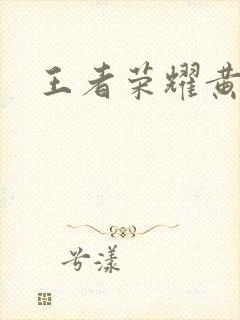 王者荣耀黄
兮漾